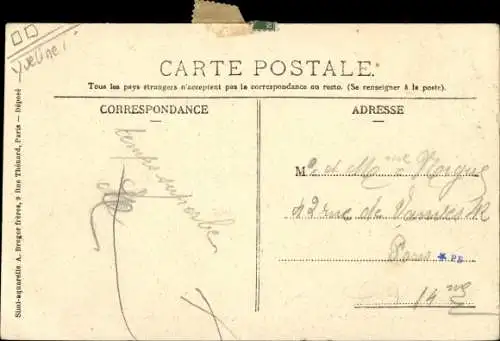 Yvelines
CARTE POSTALE.
Tous les pays étrangers n'acceptent pas la correspondance au recto. (Se renseigner à la poste).
CORRESPONDANCE
ADRESSE
temps superbe
M
et M
42 rue de
Paris * PE
14
Simi-aquarelle A. Breger frères, 9 Rue Thénard, Paris — Déposé